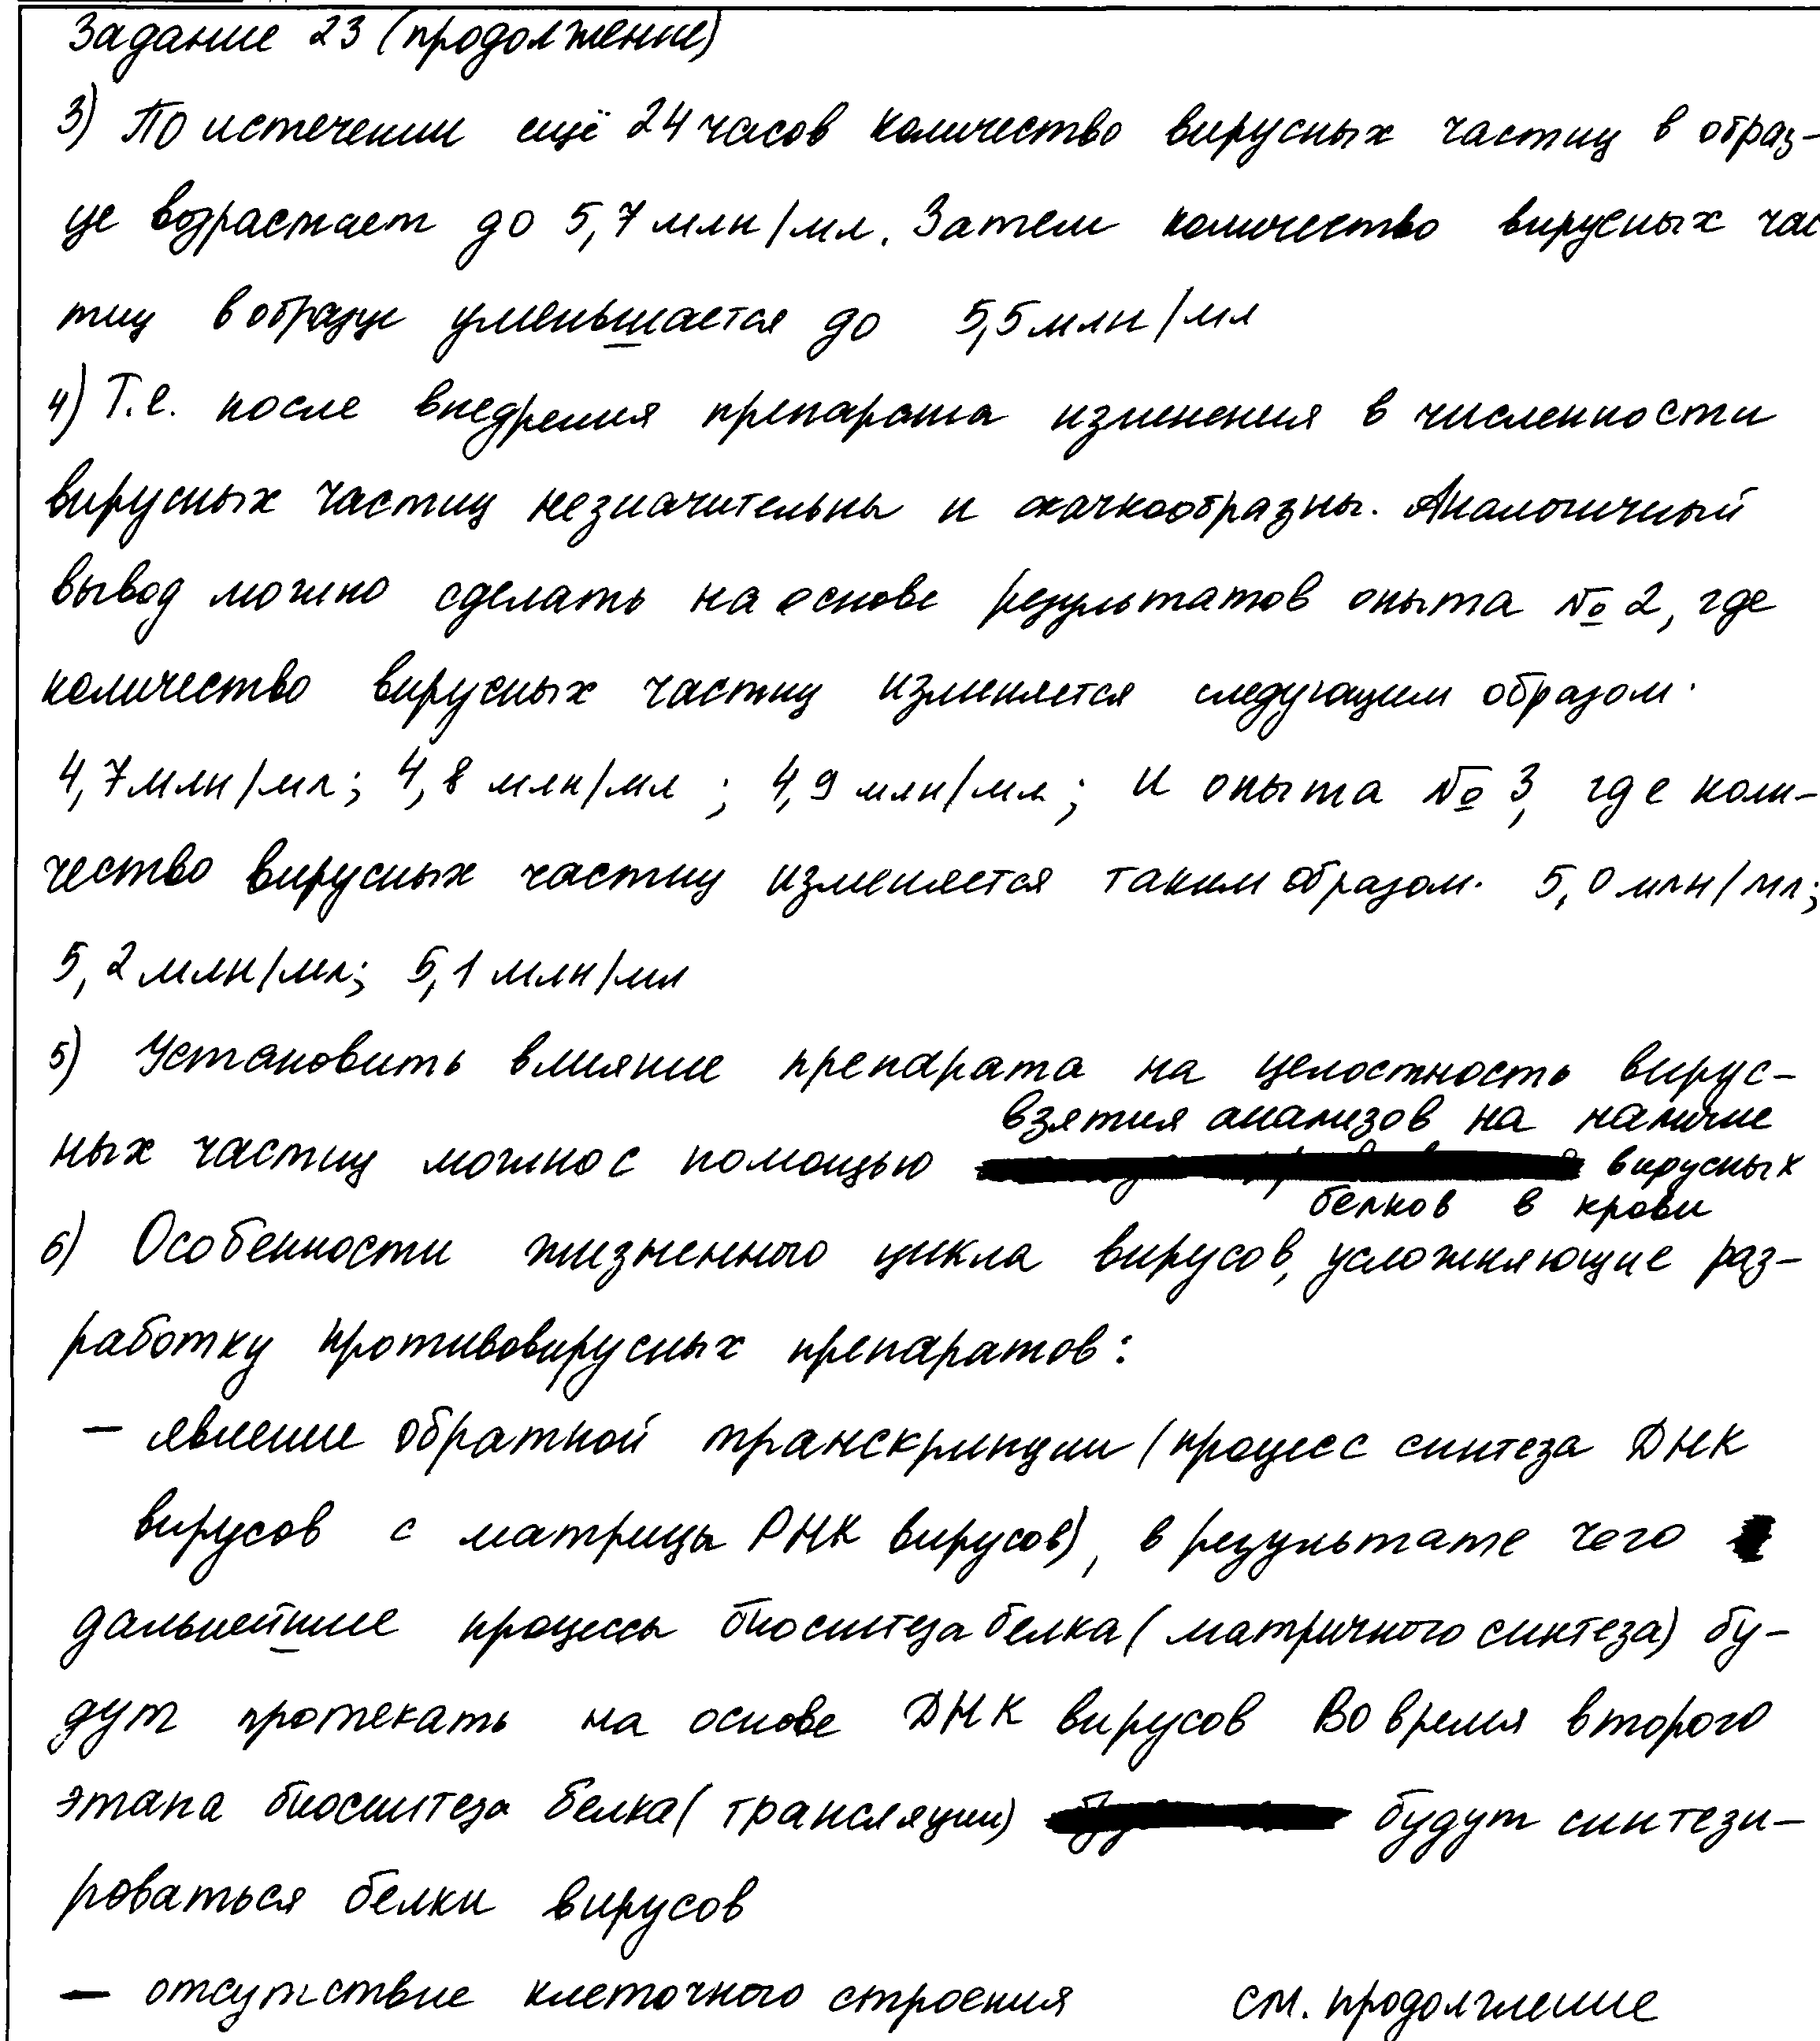 Задание 23 (продолжение)
3) По истечении ещё 24 часов количество вирусных частиц в образ-
це возрастает до 5,7 млн/мл. Затем количество вирусных час
тиц в образце уменьшается до 5,5 млн/мл
4) Т.е. после внедрения препарата изменения в численности
вирусных частиц незначительны и скачкообразны. Аналогичный
вывод можно сделать на основе результатов опыта № 2, где
количество вирусных частиц изменяется следующим образом.
4,7 млн/мл; 4,8 млн/мл ; 4,9 млн/мл; и опыта № 3, где коли-
чество вирусных частиц изменяется таким образом. 5,0 млн/мл;
5,2 млн/мл; 5,1 млн/мл
5) Установить влияние препарата на целостность вирус-
взятия анализов на наличие
ных частиц можно с помощью вирусных
белков в крови
6) Особенности жизненного цикла вирусов, усложняющие раз-
работку противовирусных препаратов:
- явление обратной транскрипции (процесс синтеза ДНК
вирусов с матрицы РНК вирусов), в результате чего
дальнейшие процессы биосинтеза белка (матричного синтеза) бу-
дут протекать на основе ДНК вирусов Во время второго
этапа биосинтеза белка (трансляции) будут синтези-
роваться белки вирусов
- отсутствие клеточного строения см. продолжение